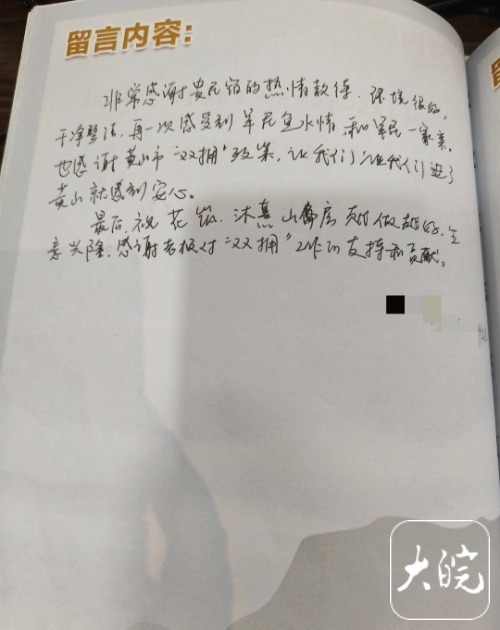 留言内容：
非常感谢贵民宿的热情款待，环境很好，
干净整洁，再一次感受到军民鱼水情和军民一家亲。
也感谢黄山市“双拥”政策，让我们一进
黄山就感到安心。
最后，祝花筑·沐熹山 越做越好，生
意兴隆，感谢老板对“双拥”工作的支持和贡献。
大皖